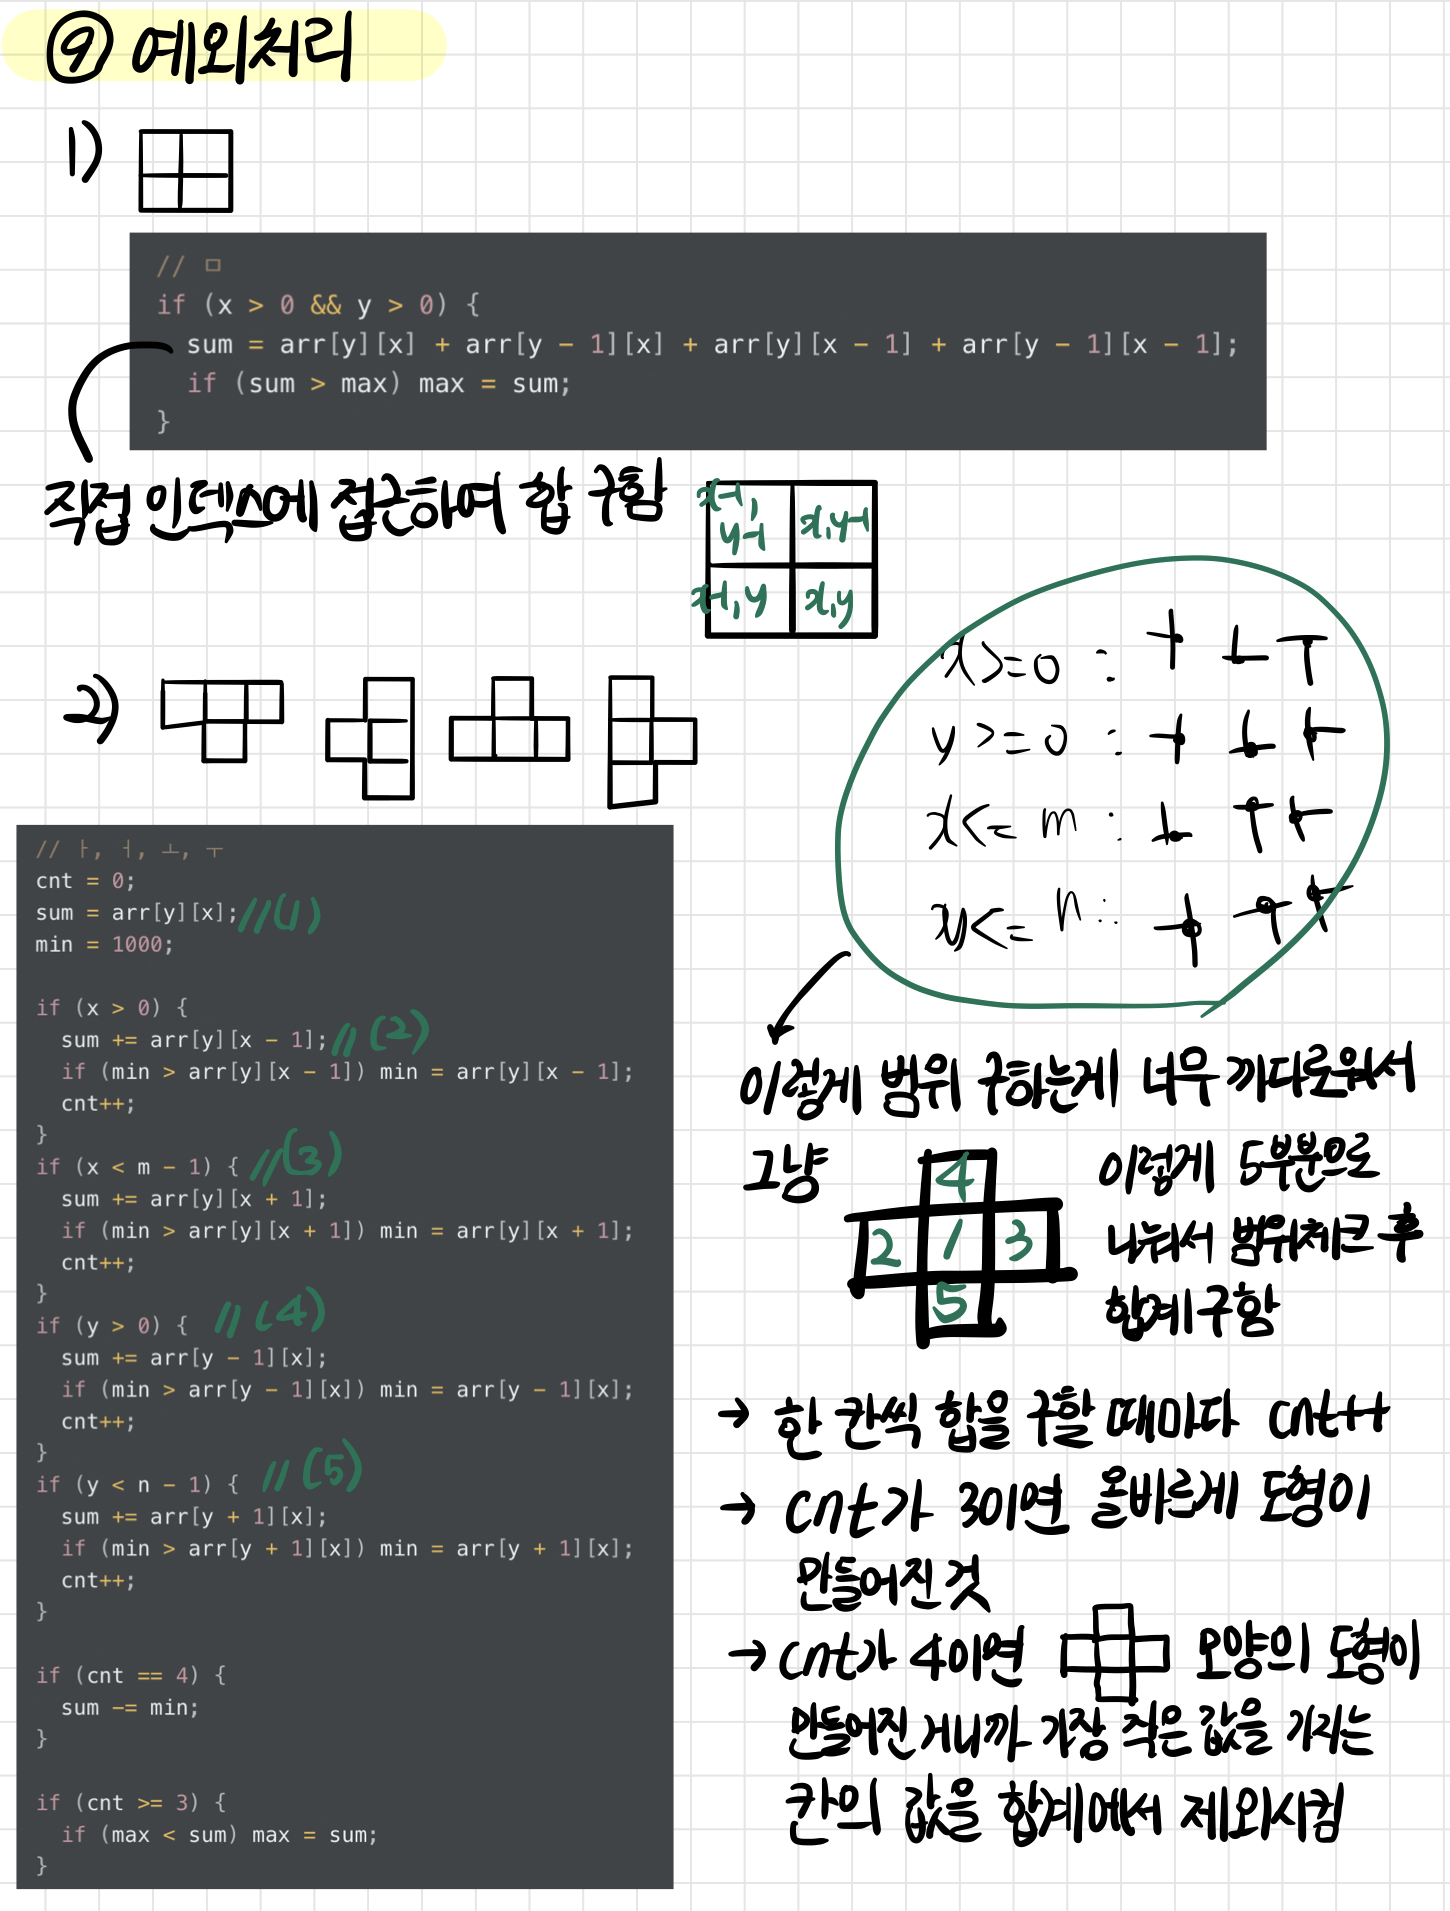 ⑨ 예외처리
1)
// ㅁ
if (x > 0 && y > 0) {
sum = arr[y][x] + arr[y - 1][x] + arr[y][x - 1] + arr[y - 1][x - 1];
if (sum > max) max = sum;
}
직접 인덱스에 접근하여 합 구함
x-1,
y-1
x,y-1
x-1,y
x,y
2)
x>=0 : ㅏ ㅗ ㅜ
y>=0 : ㅓ ㅗ ㅏ
x<=m : ㅗ ㅜ ㅏ
y<=n : ㅓ ㅜ ㅏ
// ㅏ, ㅓ, ㅗ, ㅜ
cnt = 0;
sum = arr[y][x]; //(1)
min = 1000;
if (x > 0) {
sum += arr[y][x - 1]; //(2)
if (min > arr[y][x - 1]) min = arr[y][x - 1];
cnt++;
}
if (x < m - 1) { //(3)
sum += arr[y][x + 1];
if (min > arr[y][x + 1]) min = arr[y][x + 1];
cnt++;
}
if (y > 0) { //(4)
sum += arr[y - 1][x];
if (min > arr[y - 1][x]) min = arr[y - 1][x];
cnt++;
}
if (y < n - 1) { //(5)
sum += arr[y + 1][x];
if (min > arr[y + 1][x]) min = arr[y + 1][x];
cnt++;
}
if (cnt == 4) {
sum -= min;
}
if (cnt >= 3) {
if (max < sum) max = sum;
}
이렇게 범위 구하는게 너무 까다로워서
그냥
4
2 1 3
5
이렇게 5부분으로
나눠서 범위체크 후
합계구함
→ 한 칸씩 합을 구할 때마다 cnt++
→ cnt가 3이면 올바르게 도형이
만들어진 것
→ cnt가 4이면 모양의 도형이
만들어진 거니까 가장 작은 값을 가지는
칸의 값을 합계에서 제외시킴